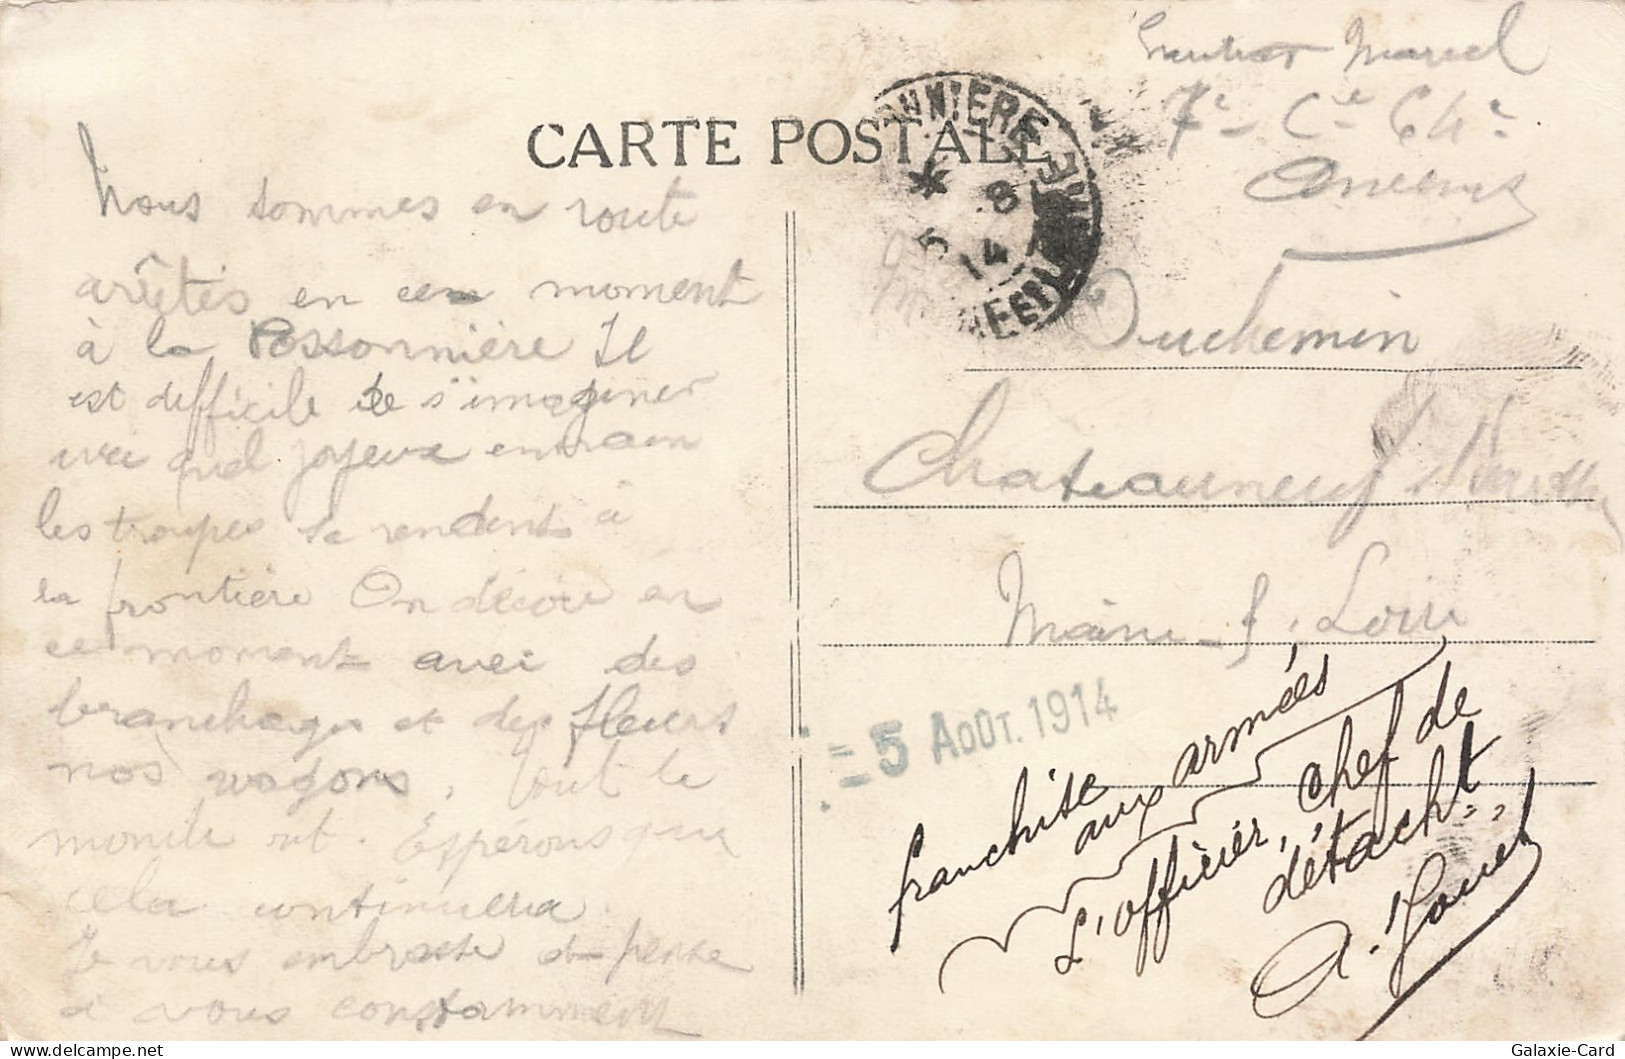 CARTE POSTALE
Nous sommes en route
arrêtés en ce moment
à la Possonnière Il
est difficile de s'imaginer
avec quel joyeux entrain
les troupes se rendent à
la frontière On décore en
ce moment avec des
branchages et des fleurs
nos wagons. Tout le
monde rit. Espérons que
cela continuera.
Je vous embrasse et pense
à vous constamment
Marcel
7e Cie 64e
Ancenis
8
5 14
Duchemin
Chateauneuf s/ Sarthe
Maine - & - Loire
= 5 AOÛT. 1914
franchise
aux armées
L'officier, chef de
détacht
Galaxie-Card